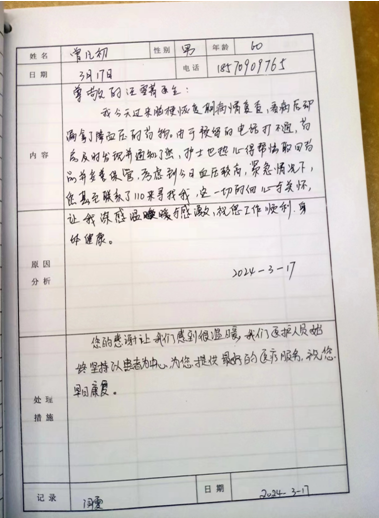 姓名 曾凡初 性别 男 年龄 60
日期 3月17日 电话 18570909765
内容
尊敬的汪雪医生：
我今天过来脑梗恢复期病情复查，看病后却
遗忘了降血压的药物。由于预留的电话打不通，药
房及时发现并通知了您，护士也担心得帮忙取回药
品并妥善保管。考虑到今日血压较高，紧急情况下，
您甚至联系了110来寻找我，这一切的细心与关怀，
让我深感温暖与感激，祝您工作顺利，身
体健康。
原因
分析
2024-3-17
处理
措施
您的感谢让我们感到很温暖，我们医护人员始
终坚持以患者为中心，为您提供最好的医疗服务，祝您
早日康复。
记录 汪雪 日期 2024-3-17